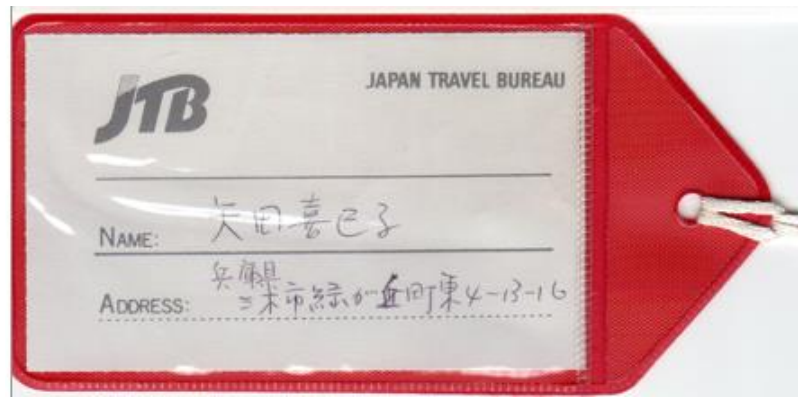 JTB
JAPAN TRAVEL BUREAU
NAME: 矢田喜巳子
兵庫県
ADDRESS: 三木市緑が丘町東4-13-16